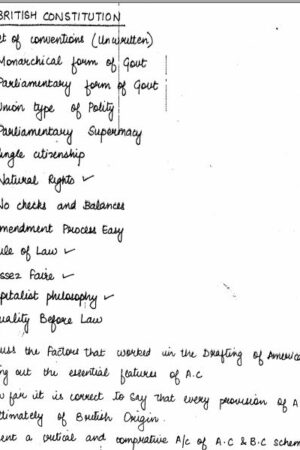 BRITISH CONSTITUTION
et of conventions (Unwritten)
Monarchical form of Govt
Parliamentary form of Govt
Union type of Polity
Parliamentary Supermacy
ingle citizenship
Natural Rights ✓
No checks and Balances
mendment Process Easy
ule of Law ✓
issez Faire ✓
apitalist philosophy ✓
uality Before Law
uss the Factors that worked in the Drafting of America
ing out the essential features of A.C
w far it is correct to Say that every provision of A
ltimately of British Origin.
ent a critical and comprative A/c of A.C & B.C schem